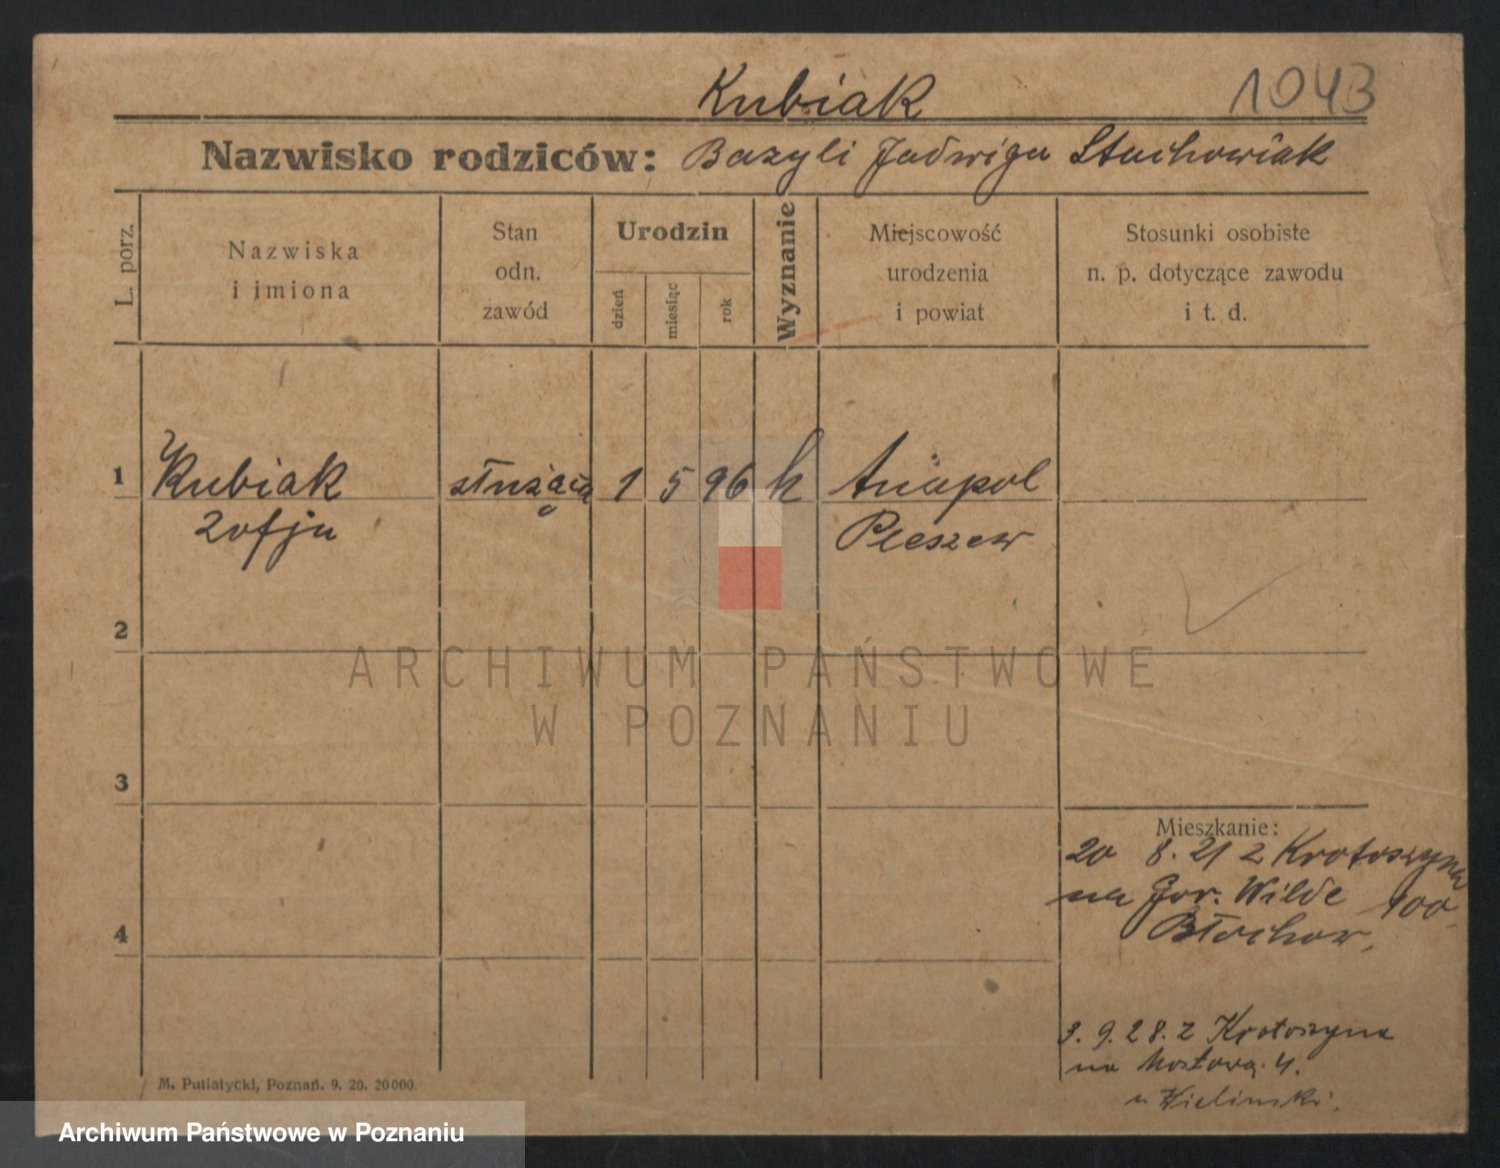 Kubiak 1043
Nazwisko rodziców: Bazyli Jadwiga Stachowiak
L. porz.
Nazwiska
i imiona
Stan
odn.
zawód
Urodzin
dzień
miesiąc
rok
Wyznanie
Miejscowość
urodzenia
i powiat
Stosunki osobiste
n. p. dotyczące zawodu
i t. d.
1 Kubiak służąca 1 5 96 k Anapol
Zofja Pleszew
2
ARCHIWUM PAŃSTWOWE
W POZNANIU
3
Mieszkanie:
20 8. 21 z Krotoszyna
na Gór. Wilde 100
4
3. 9. 28. z Krotoszyna
na Mostową. 4.
u Kieliński.
M. Putiatycki, Poznań. 9. 20. 20000.
Archiwum Państwowe w Poznaniu